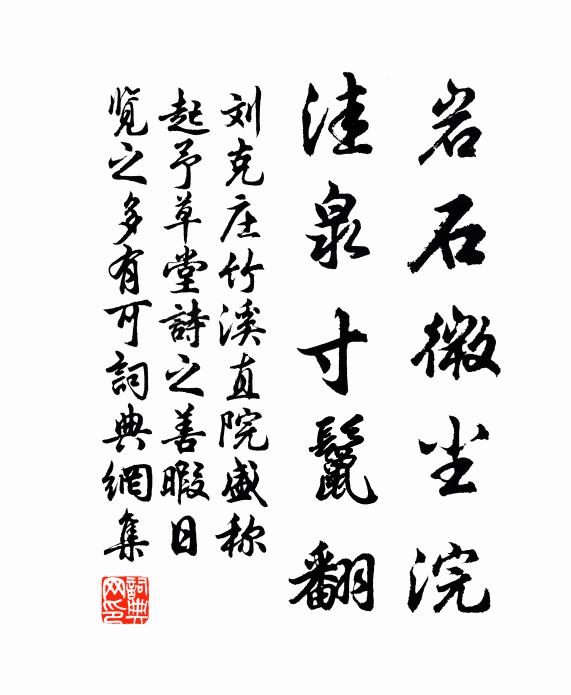 岩石微尘浣
洼泉寸鬣翻
刘克庄竹溪直院盛称
起予草堂詩之善暇日
览之多有可詞典網集
詞典网印